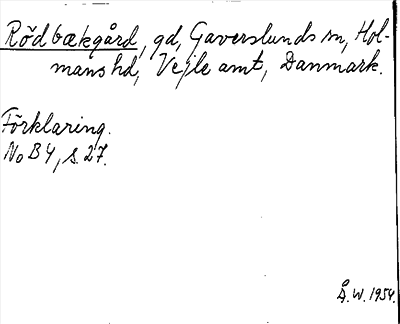 Rödbækgård, gd, Gaverslunds sn, Hol-
mans hd, Vejle amt, Danmark.
Förklaring.
NoB 4, s. 27.
Å.W. 1954.